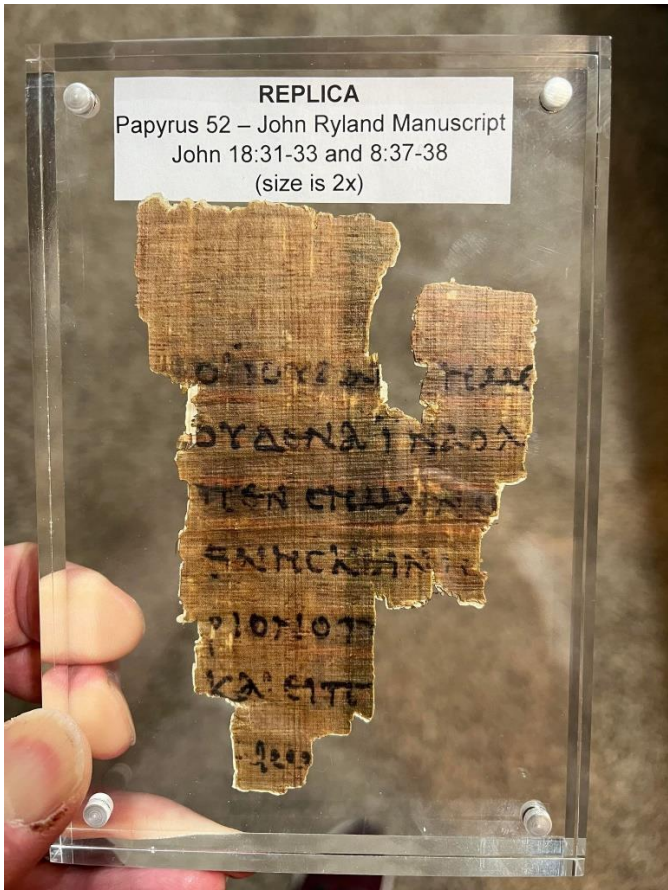 REPLICA
Papyrus 52 – John Ryland Manuscript
John 18:31-33 and 8:37-38
(size is 2x)
ΟΙΙΟΥΔΑΙ ΗΜΕ
ΟΥΔΕΝΑΪΝΑΟΛ
ΠΕΝ ΣΗΜΑΙΝΩ
ΘΝΗΣΚΕΙΝ
ΡΙΟΝΟΠ
ΚΑΙΕΙΠ